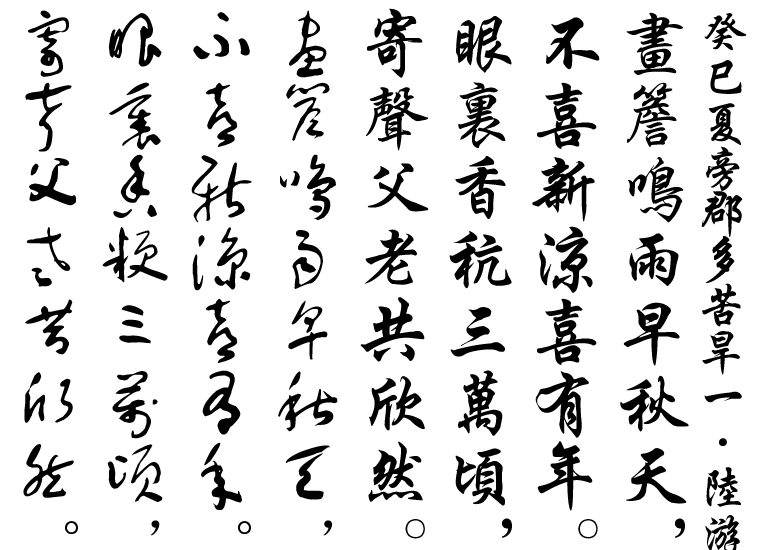 癸巳夏旁郡多苦旱一·陸游
畫簷鳴雨早秋天，
不喜新涼喜有年。
眼裏香秔三萬頃，
寄聲父老共欣然。
畫簷鳴雨早秋天，
不喜新涼喜有年。
眼裏香粳三萬頃，
寄聲父老共欣然。